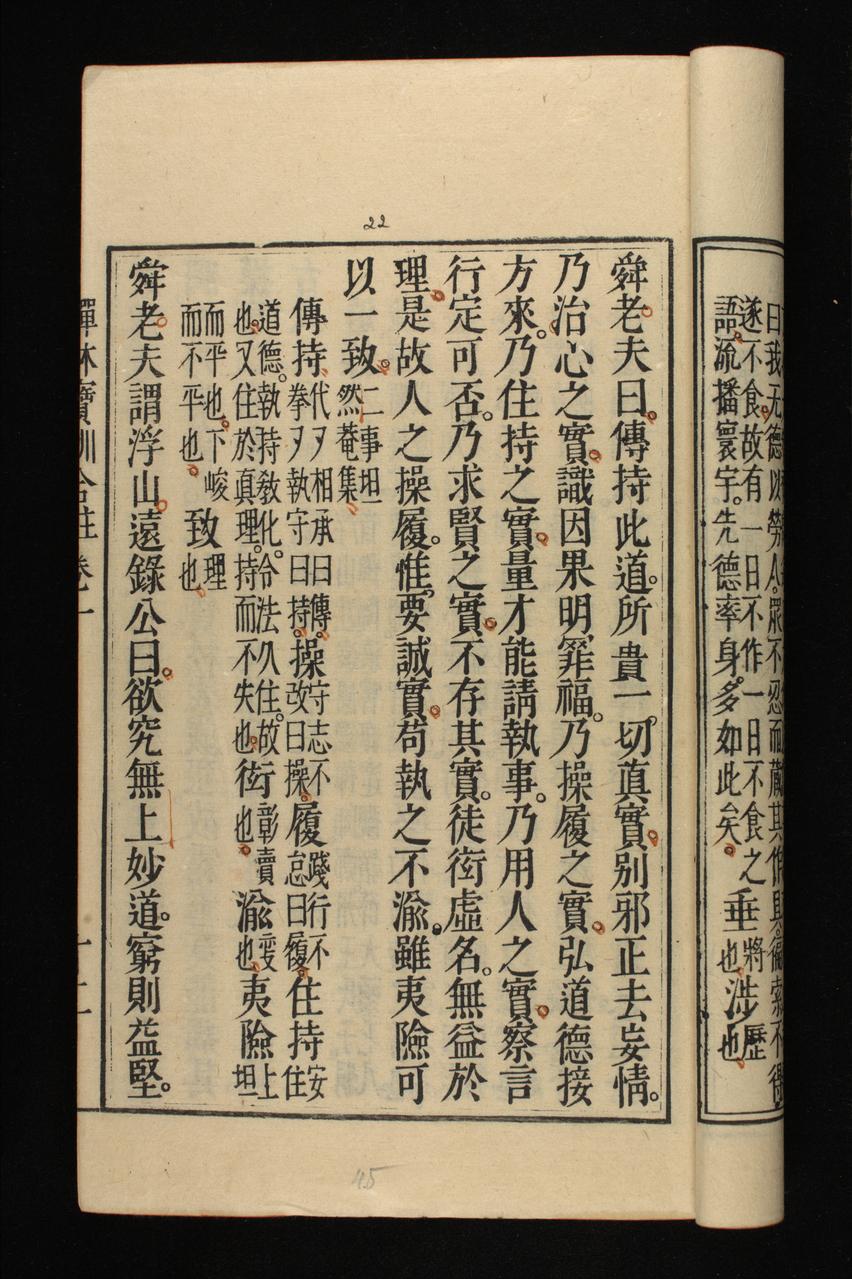 曰我无德以勞人。眾不忍而藏其作具。徧索不得
遂不食。故有一日不作一日不食之
語。流播寰宇。先德率身。多如此矣。垂將也。涉歷也。
22
舜老夫曰。傳持此道。所貴一切真實。別邪正去妄情。
乃治心之實。識因果明罪福。乃操履之實。弘道德接
方來。乃住持之實。量才能請執事。乃用人之實。察言
行定可否。乃求賢之實。不存其實。徒衒虛名。無益於
理。是故人之操履。惟要誠實。苟執之不渝。雖夷險可
以一致。二事坦然菴集
傳持代代相承曰傳。拳拳執守曰持。操守志不改曰操。履踐行不怠曰履。住持安住
道德。執持教化。令法久住。故也。又住於真理。持而不失也。衒彰賣也。渝變也。夷險上坦
而平也。下峻而不平也。致理也。
舜老夫謂浮山遠錄公曰。欲究無上妙道。窮則益堅。
禪林寶訓合註卷一
十二
45